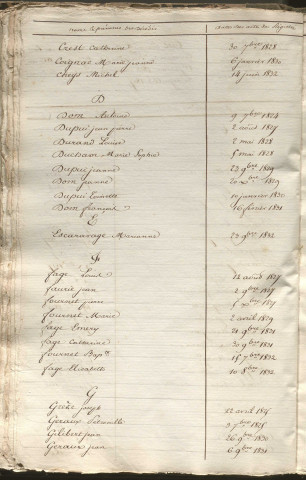 noms et prénoms des décédés dates des actes des Registres
Crest Catherine 30 7bre 1828
Coignac Marie jeanne 6 janvier 1830
Cheys Michel 14 juin 1832
D
Dom Antoine 9 7bre 1824
Dupuÿ jean pierre 2 août 1827
Durand Louise 2 mai 1828
Marie Sophie 5 mai 1828
Dupuÿ jeanne 23 9bre 1829
Dom jeanne 1829
Dupuÿ 10 janvier 1830
Dom françois 16 février 1831
E
Escuravage Marianne 23 9bre 1832
F
fage Louise 12 août 1827
faurie jean 2 9bre 1827
fournet pierre 1827
fournet Marie 2 avril 1829
fage Emery 21 9bre 1831
fage Catherine 30 9bre 1831
fournet Bapte 15 7bre 1832
fage Marie 10 8bre 1832
G
Grèze joseph 22 avril
Geraux Petronille 3 7bre
Gilibert jean 26 9bre 1830
Geraux jean 6 9bre 1831